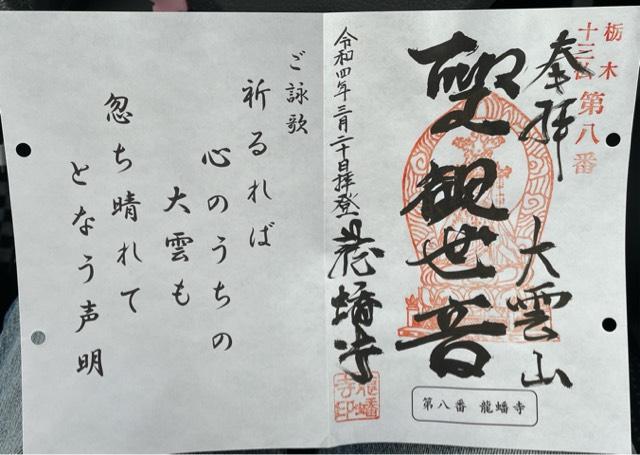 栃木
十三仏 第八番
奉拝
大雲山
聖観世音
令和四年三月二十日拝登
龍蟠寺
龍蟠寺印
第八番 龍蟠寺
ご詠歌
祈るれば
心のうちの
大雲も
忽ち晴れて
となう声明